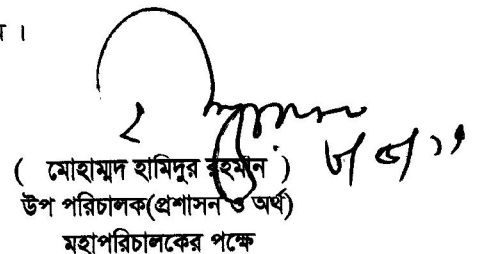 ।
( মোহাম্মদ হামিদুর রহমান )
উপ পরিচালক(প্রশাসন ও অর্থ)
মহাপরিচালকের পক্ষে